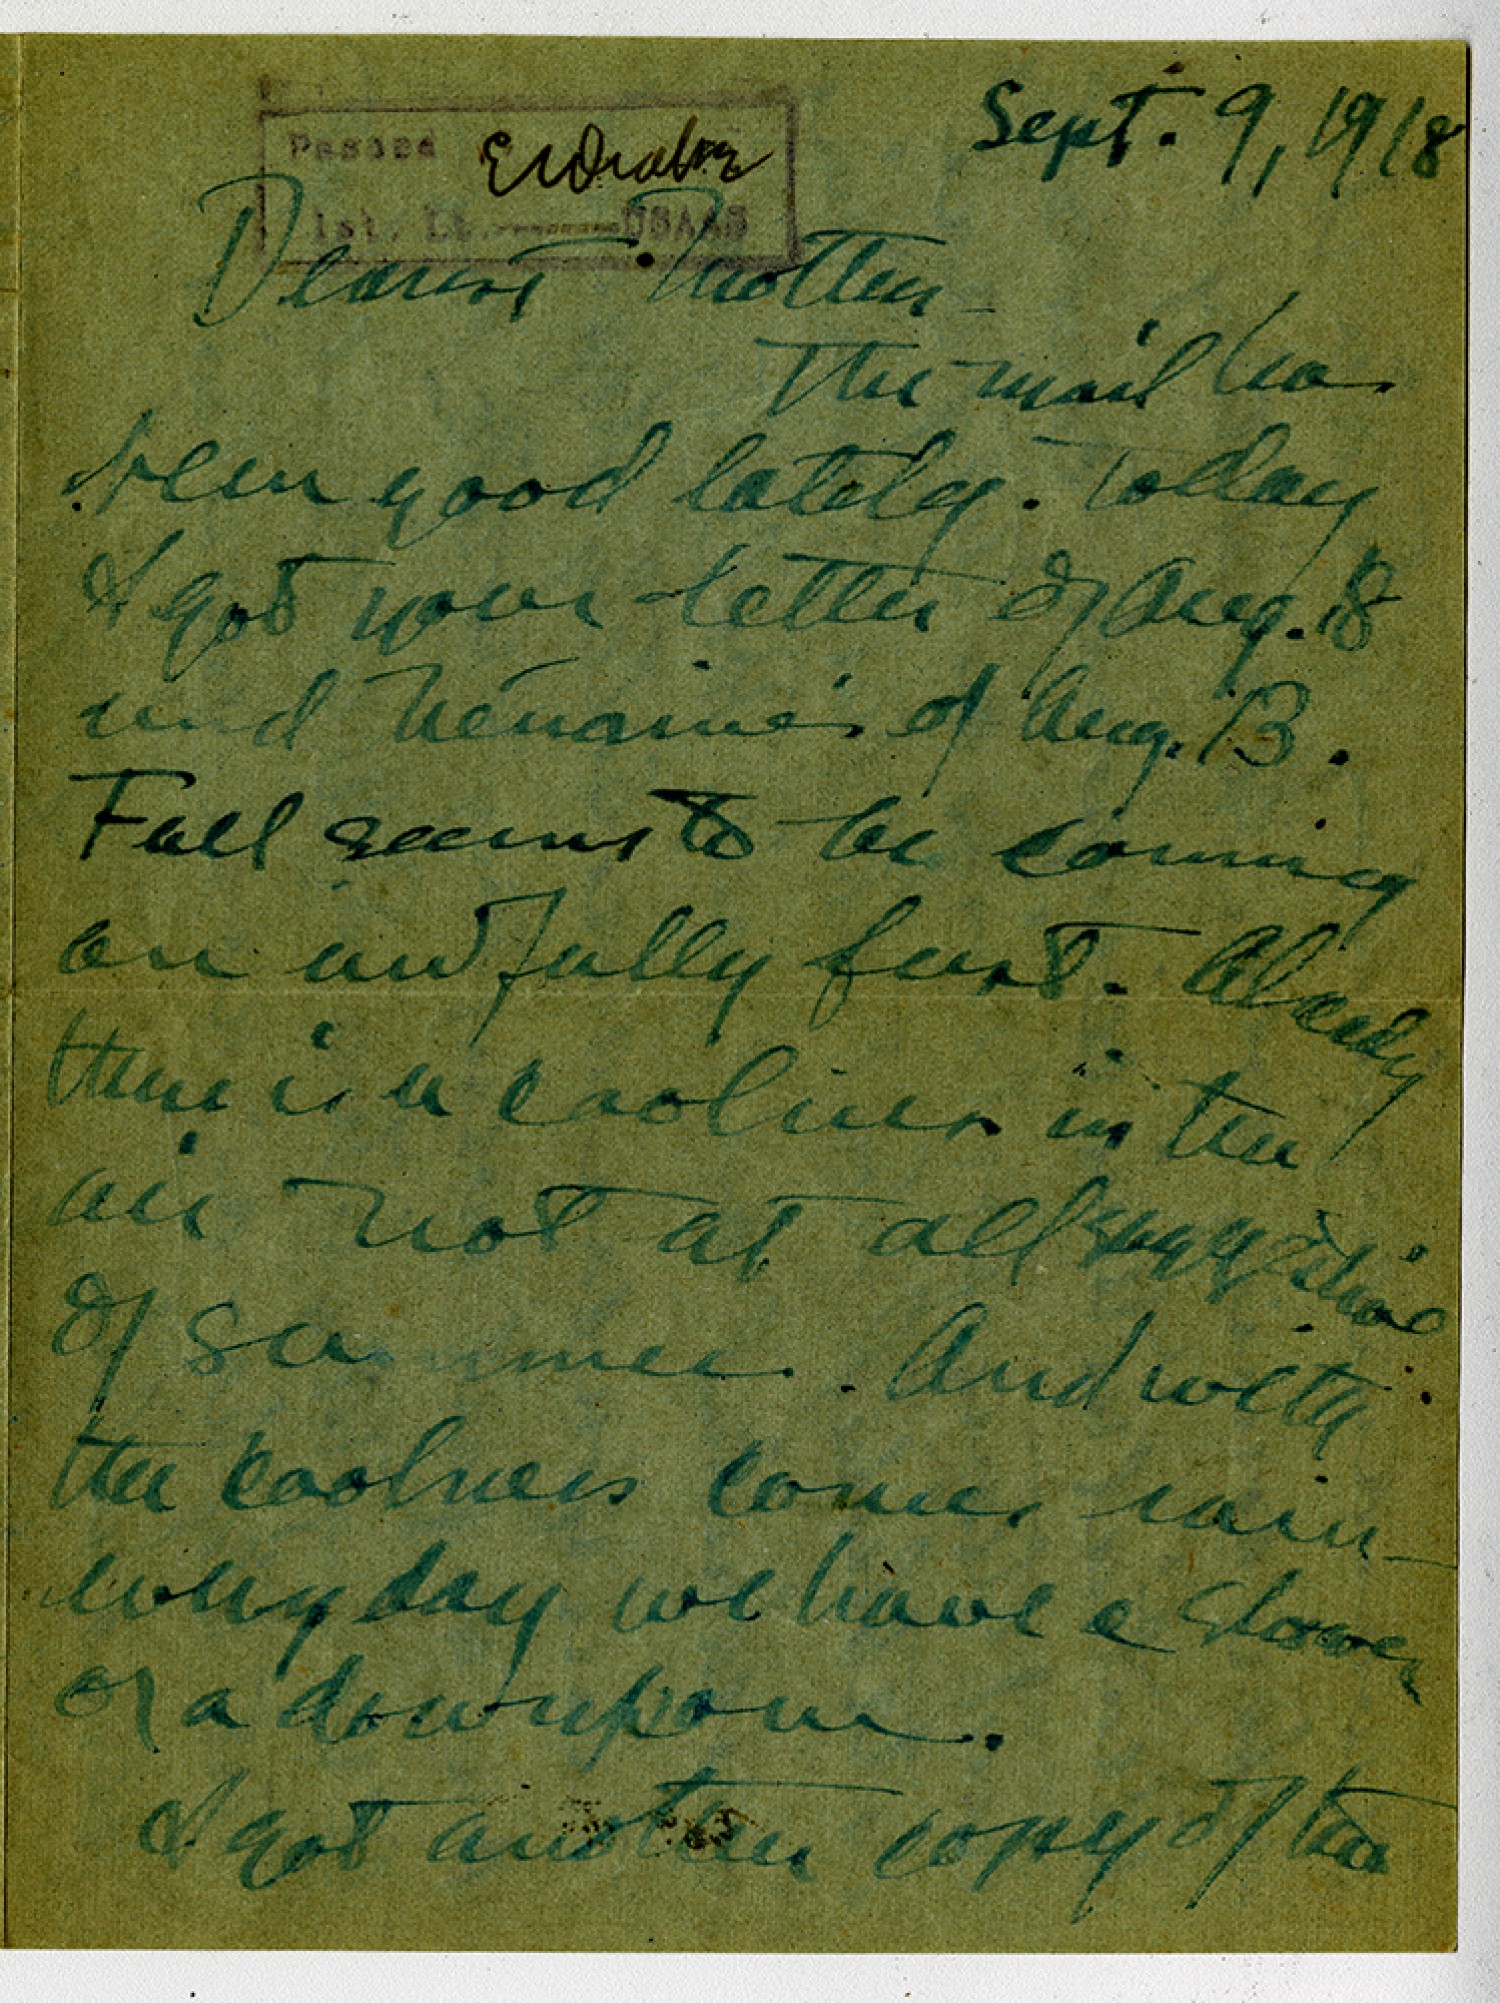 Sept. 9, 1918
Passed
1st. Lt. USAAS
Dearest Mother -
The mail has
been good lately. Today
I got your letter of Aug. 18
and Nenanie's of Aug. 13.
Fall seems to be coming
on awfully fast. Already
there is a coolness in the
air not at all suggestive
of summer. And with
the coolness comes rain -
every day we have a shower
or a downpour.
I got another copy of the